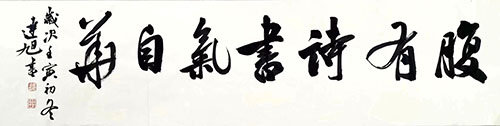 腹有詩書氣自華
歲次壬寅初冬
達旭書